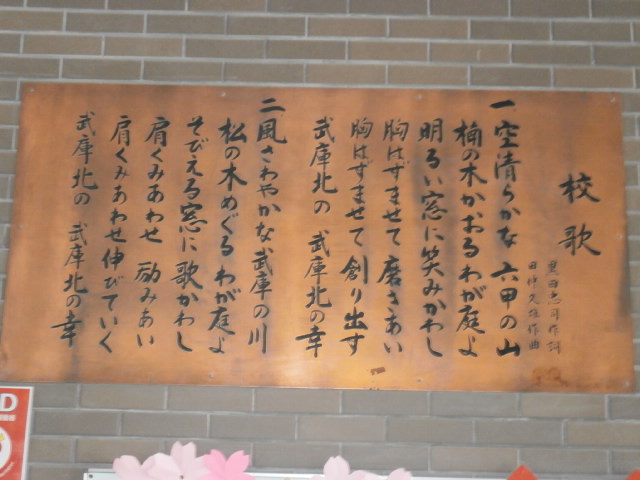 校歌
田忠司作詞
田中久雄作曲
一 空清らかな 六甲の山
楠の木かおるわが庭よ
明るい窓に笑みかわし
胸はずませて 磨きあい
胸はずませて 創り出す
武庫北の 武庫北の幸
二 風さわやかな武庫の川
松の木めぐるわが庭よ
そびえる窓に歌かわし
肩くみあわせ 励みあい
肩くみあわせ伸びていく
武庫北の 武庫北の幸
D